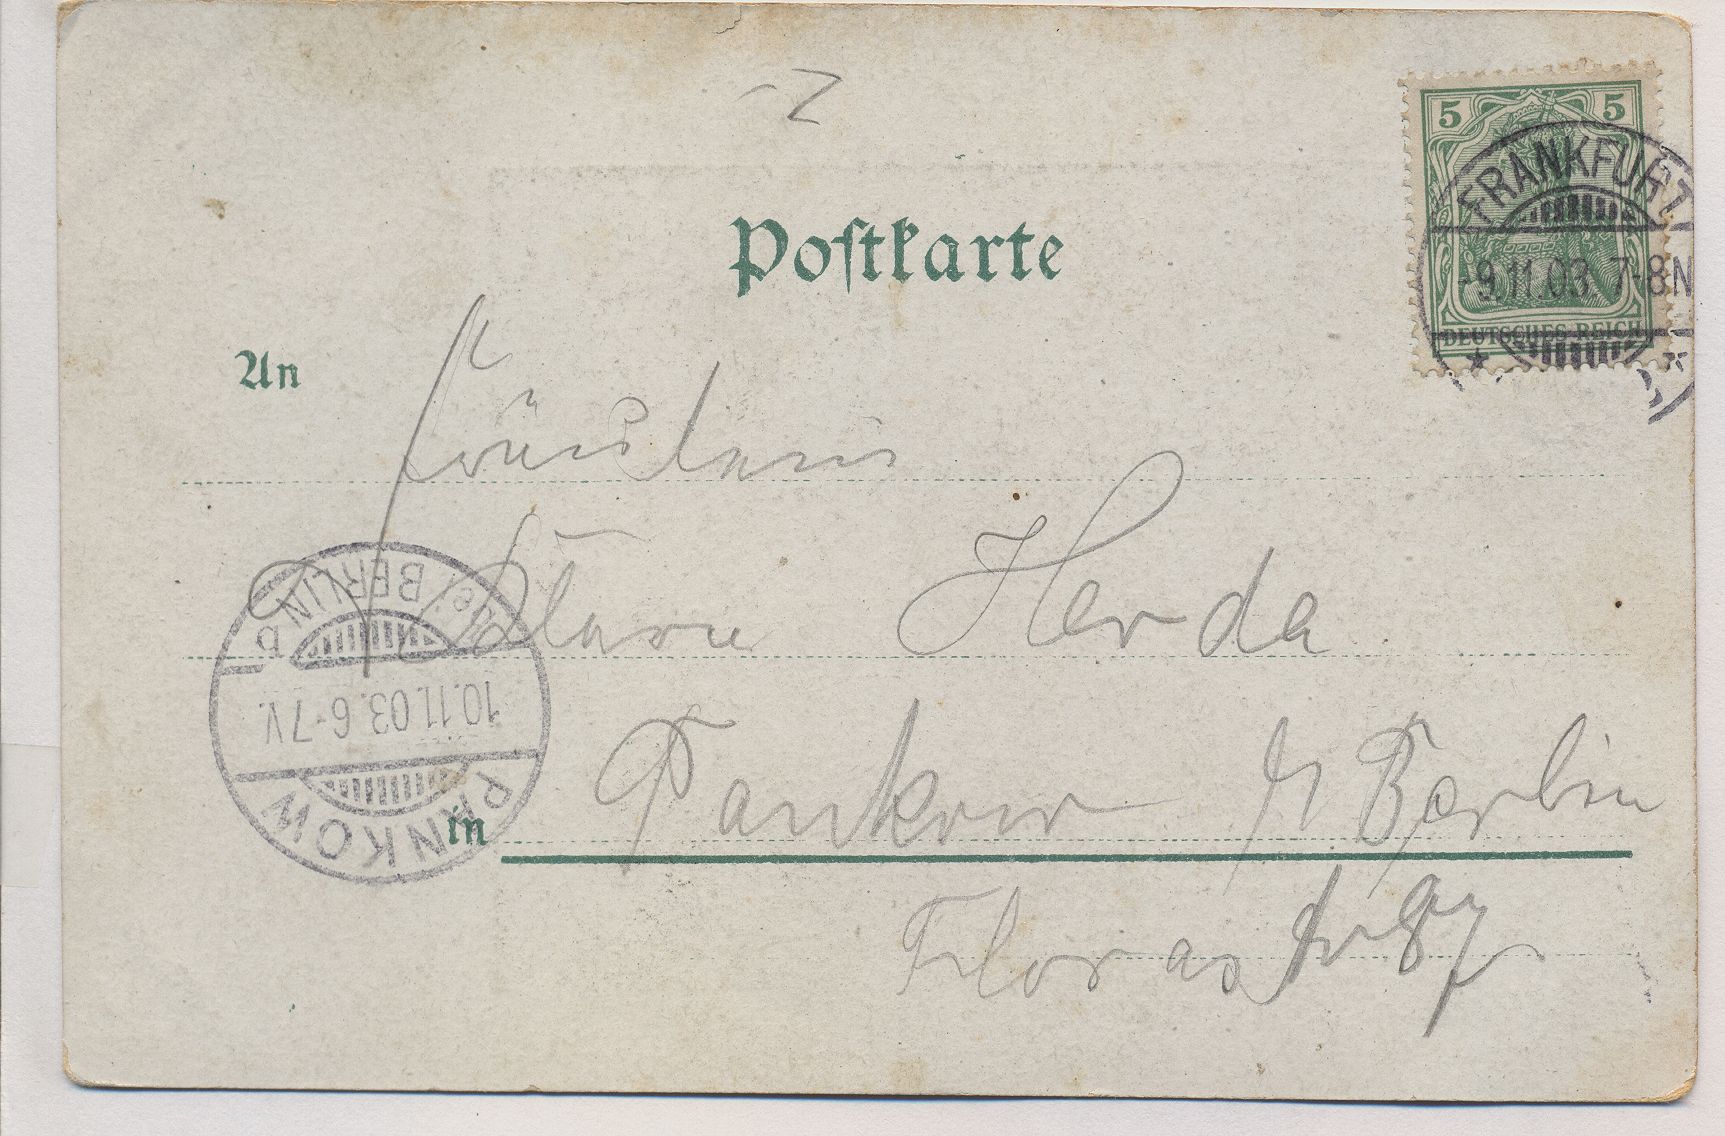 5 5
FRANKFURT
-9.11.03. 7-8N
DEUTSCHES REICH
Postkarte
An
Fräulein
Klara Herda
PANKOW
10.11.03. 6-7V.
BERLIN
in Pankow b/ Berlin
Florastr 87